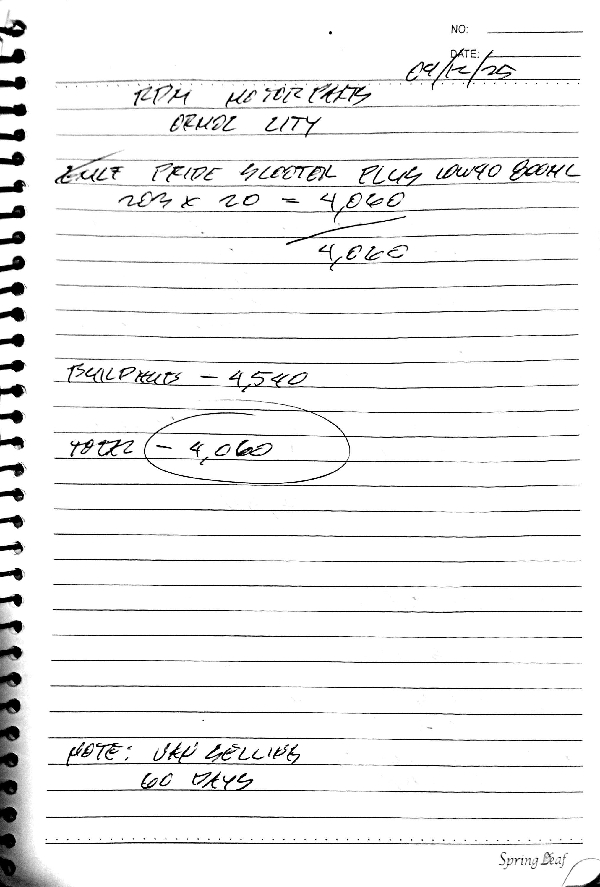 NO:
DATE: 09/12/25
RPM MOTORPARTS
ORMOC CITY
PRIDE SCOOTER PLUS 10W40 800ML
203 x 20 = 4,060
4,060
BUILDHUBS - 4,540
TOTAL - 4,060
NOTE: VAN SELLING
60 DAYS
Spring Leaf